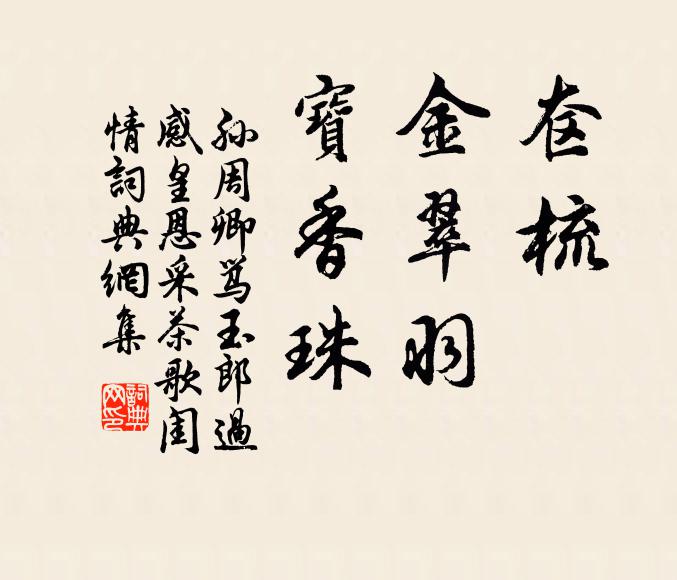 奁梳
金翠羽
寶香珠
孫周卿罵玉郎過
感皇恩采茶歌閨
情詞典網集
詞典网印